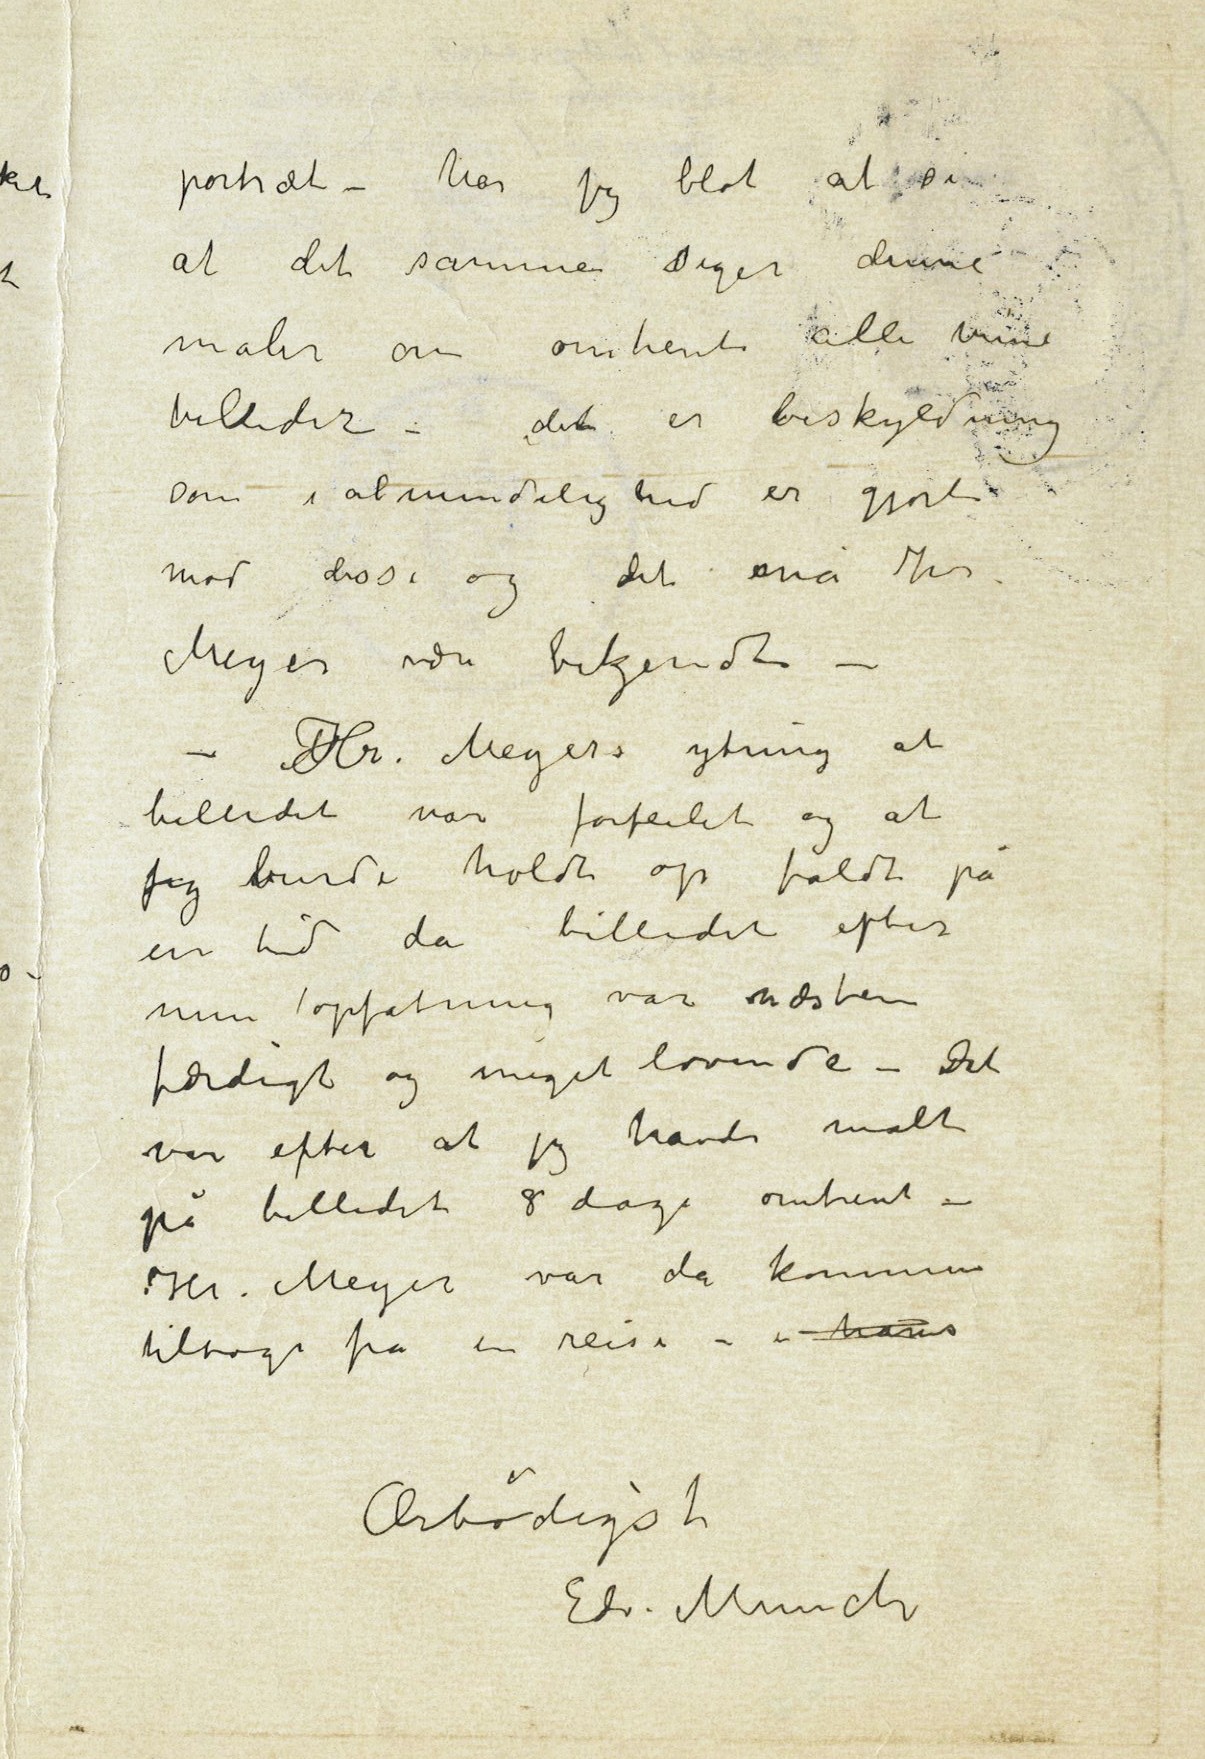 portræt – har jeg blot at si
at det samme siger denne
maler om omtrent alle mine
billeder – det er beskyldning
som i almindelighed er gjort
mod disse og det må Hr.
Meyer være bekjendt –
– Hr. Meyers ytring at
billedet var forfeilet og at
jeg burde holdt op faldt på
en tid da billedet efter
min opfatning var næsten
færdigt og meget lovende – Det
var efter at jeg havde malt
på billedet 8 dage omtrent –
Hr. Meyer var da kommen
tilbage fra en reise – i hans
Ærbödigst
Edv. Munch